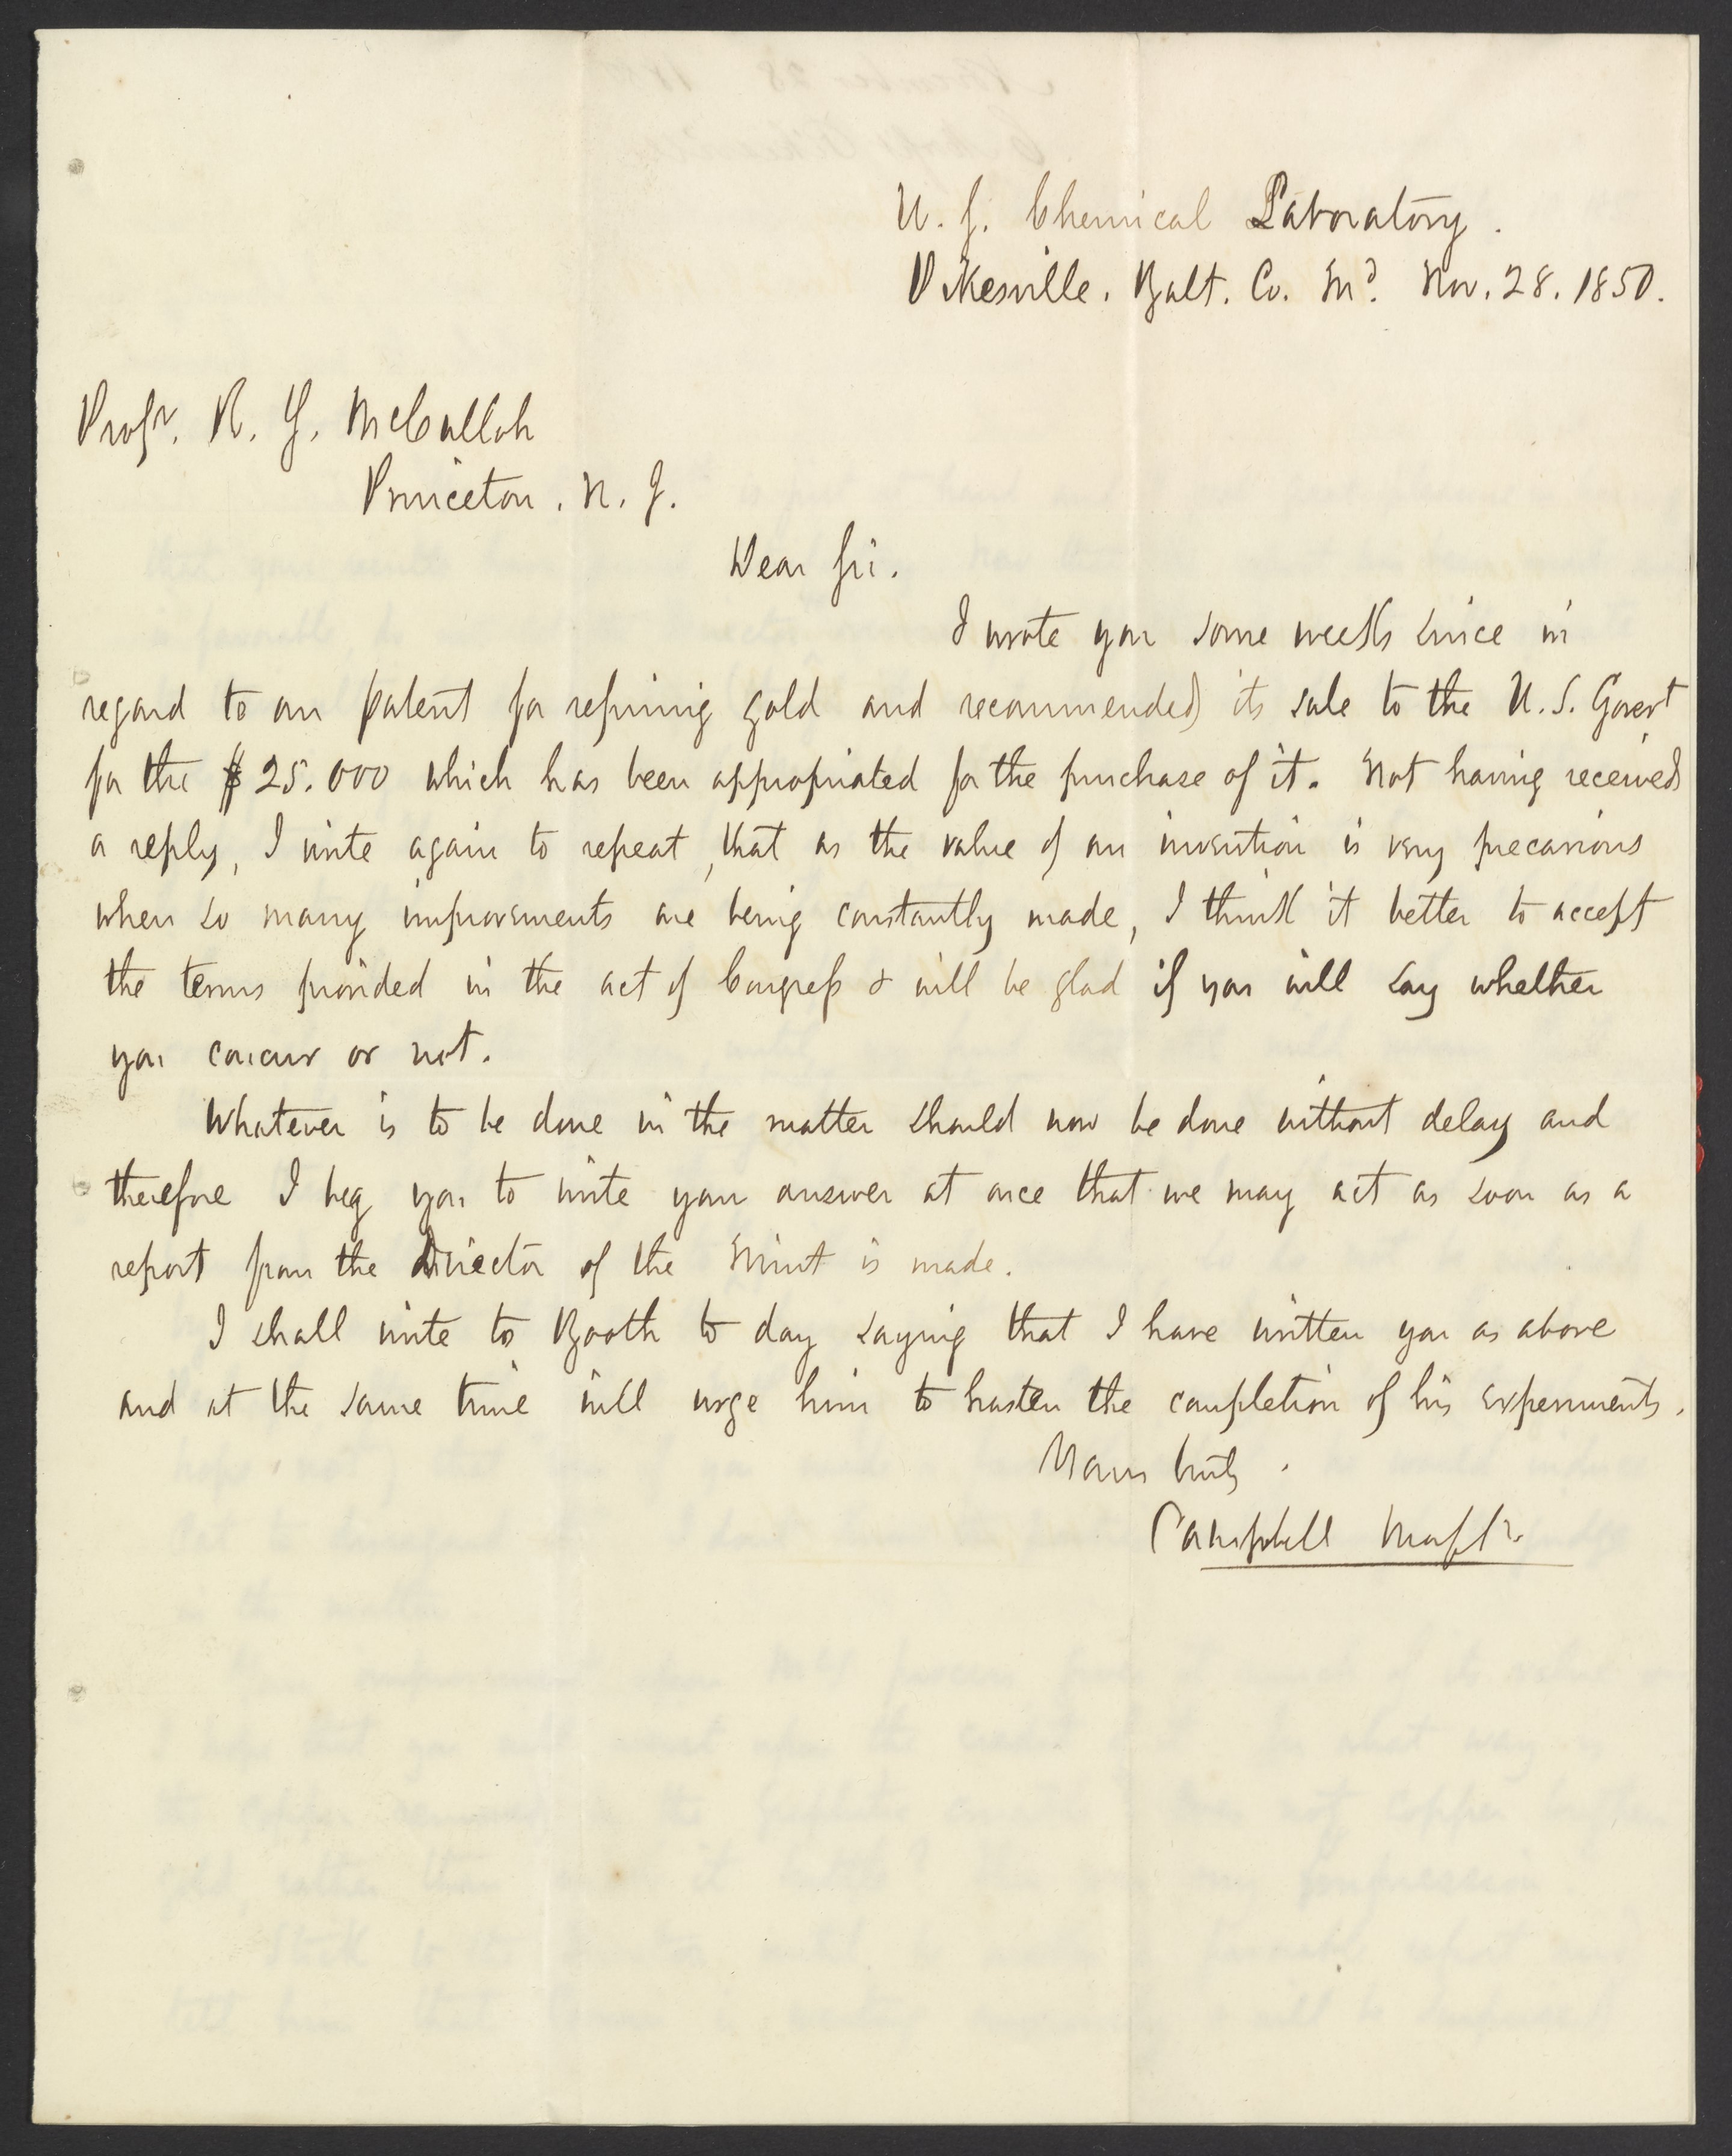 U. S. Chemical Laboratory.
Pikesville. Balt. Co. Md. Nov. 28. 1850.
Profr. R. S. McCulloh
Princeton. N. J.
Dear Sir.
I wrote you some weeks since in
regard to our patent for refining gold and recommended its sale to the U.S. Govert
for the $25.000 which has been appropriated for the purchase of it. Not having received
a reply, I write again to repeat, that as the value of an invention is very precarious
when so many improvements are being constantly made, I think it better to accept
the terms provided in the act of Congress & will be glad if you will say whether
you concur or not.
Whatever is to be done in the matter should now be done without delay and
therefore I beg you to write your answer at once that we may act as soon as a
report from the Director of the Mint is made.
I shall write to Booth to day saying that I have written you as above
and at the same time will urge him to hasten the completion of his experiments.
Yours truly.
Campbell Morfit.